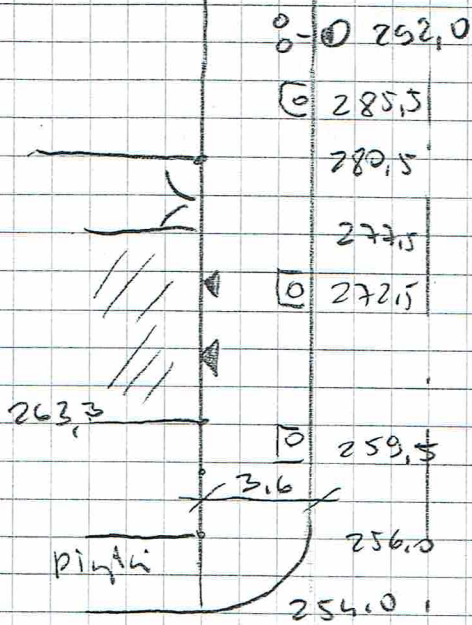 252,0
285,5
280,5
277,5
272,5
263,3
259,5
3,6
256,0
254,0